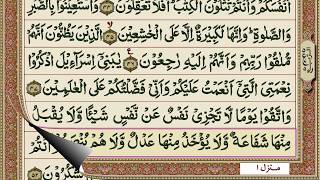 اَنْفُسَكُمْ وَاَنْتُمْ تَتْلُوْنَ الْكِتٰبَ ؕ اَفَلَا تَعْقِلُوْنَ ﴿۴۴﴾ وَاسْتَعِيْنُوْا بِالصَّبْرِ
وَالصَّلٰوةِ ؕ وَاِنَّهَا لَكَبِيْرَةٌ اِلَّا عَلَى الْخٰشِعِيْنَ ﴿۴۵﴾ الَّذِيْنَ يَظُنُّوْنَ اَنَّهُمْ
مُّلٰقُوْا رَبِّهِمْ وَاَنَّهُمْ اِلَيْهِ رٰجِعُوْنَ ﴿۴۶﴾ يٰبَنِىْٓ اِسْرَآءِيْلَ اذْكُرُوْا
نِعْمَتِىَ الَّتِىْٓ اَنْعَمْتُ عَلَيْكُمْ وَاَنِّىْ فَضَّلْتُكُمْ عَلَى الْعٰلَمِيْنَ ﴿۴۷﴾
وَاتَّقُوْا يَوْمًا لَّا تَجْزِىْ نَفْسٌ عَنْ نَّفْسٍ شَيْئًا وَّلَا يُقْبَلُ
مِنْهَا شَفَاعَةٌ وَّلَا يُؤْخَذُ مِنْهَا عَدْلٌ وَّلَا هُمْ
منزل ۱